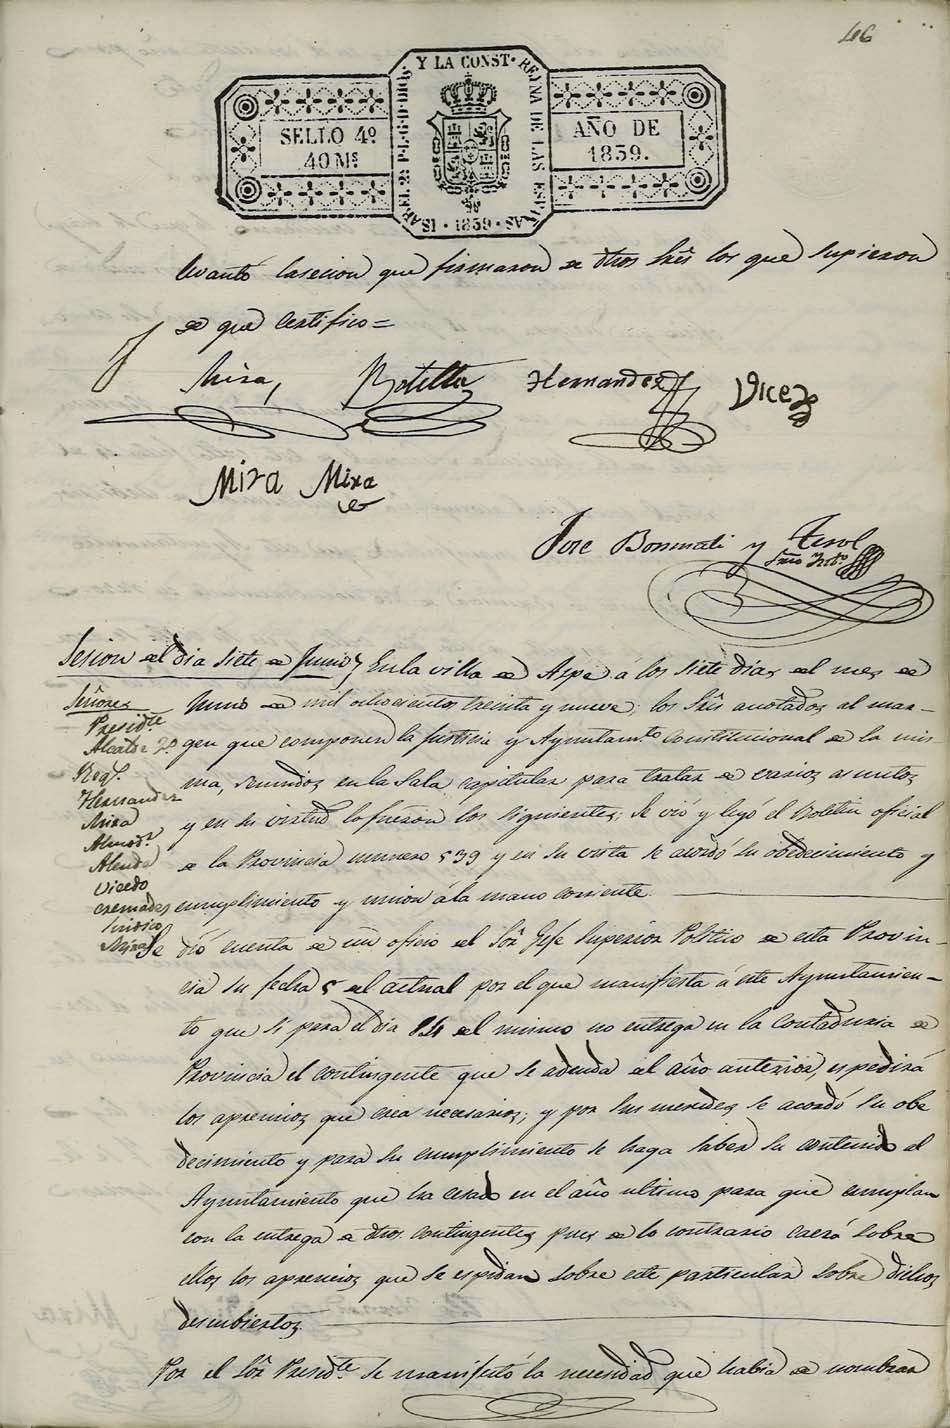 46
Y LA CONST. REYNA DE LAS ESP.AS
ISABEL 2ª P.L.G.D DIOS
SELLO 4º
40 Mˢ
AÑO DE
1839.
1839
levantó la secion que firmaron de dhos Sres los que supieron
de que certifico=
Mira,
Botella
Hernandez
Vicedo
Mira
Mira
Jose Bonmati y Terol
Srio Into
Sesion del dia siete de Junio
En la villa de Aspe á los siete dias del mes de
Señores
Presidte
Alcalde 2º
Regs.
Hernandez
Mira
Almodr
Alenda
Vicedo
Cremades
Sindico
Mira
Junio de mil ochocientos treinta y nueve; los Sres anotados al mar-
gen que componen la Justicia y Ayuntamto constitucional de la mis-
ma, reunidos en la Sala capitular para tratar de varios asuntos,
y en su virtud lo fueron los siguientes; Se vió y leyó el Boletin oficial
de la Provincia numero 539 y en su vista se acordó su obedecimiento y
cumplimiento y union á la mano corriente.
Se dió cuenta de un oficio del Sor Gefe Superior Politico de esta Provin-
cia su fecha 5 del actual por el que manifiesta á este Ayuntamien-
to que si para el dia 14 del mismo no entrega en la Contaduria de
Provincia el contingente que se adeuda del año anterior, espedirá
los apremios que crea necesarios; y por sus mercedes se acordó su obe
decimiento y para su cumplimiento se haga saber su contenido al
Ayuntamiento que ha cesado en el año ultimo para que cumplan
con la entrega de dhos. contingentes pues de lo contrario caerá sobre
ellos los apremios que se espidan sobre este particular sobre dichos
descubiertos.
Por el Sor Presidte se manifestó la necesidad que habia de nombrar